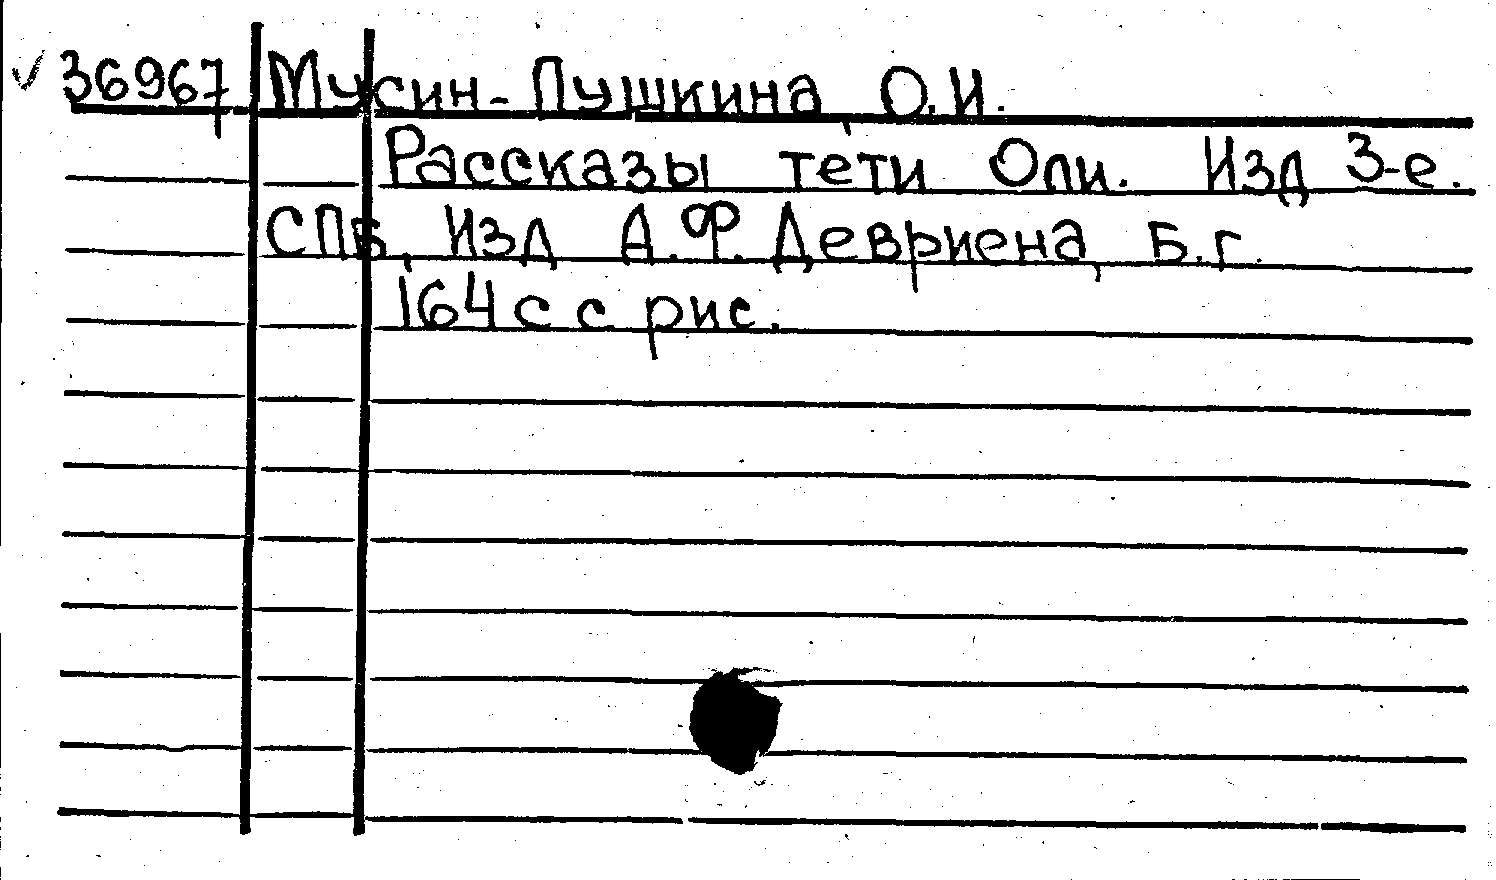 36967 Мусин-Пушкина, О.И.
Рассказы тети Оли. Изд 3-е.
СПБ, Изд А.Ф. Девриена, Б.г.
164 с с рис.